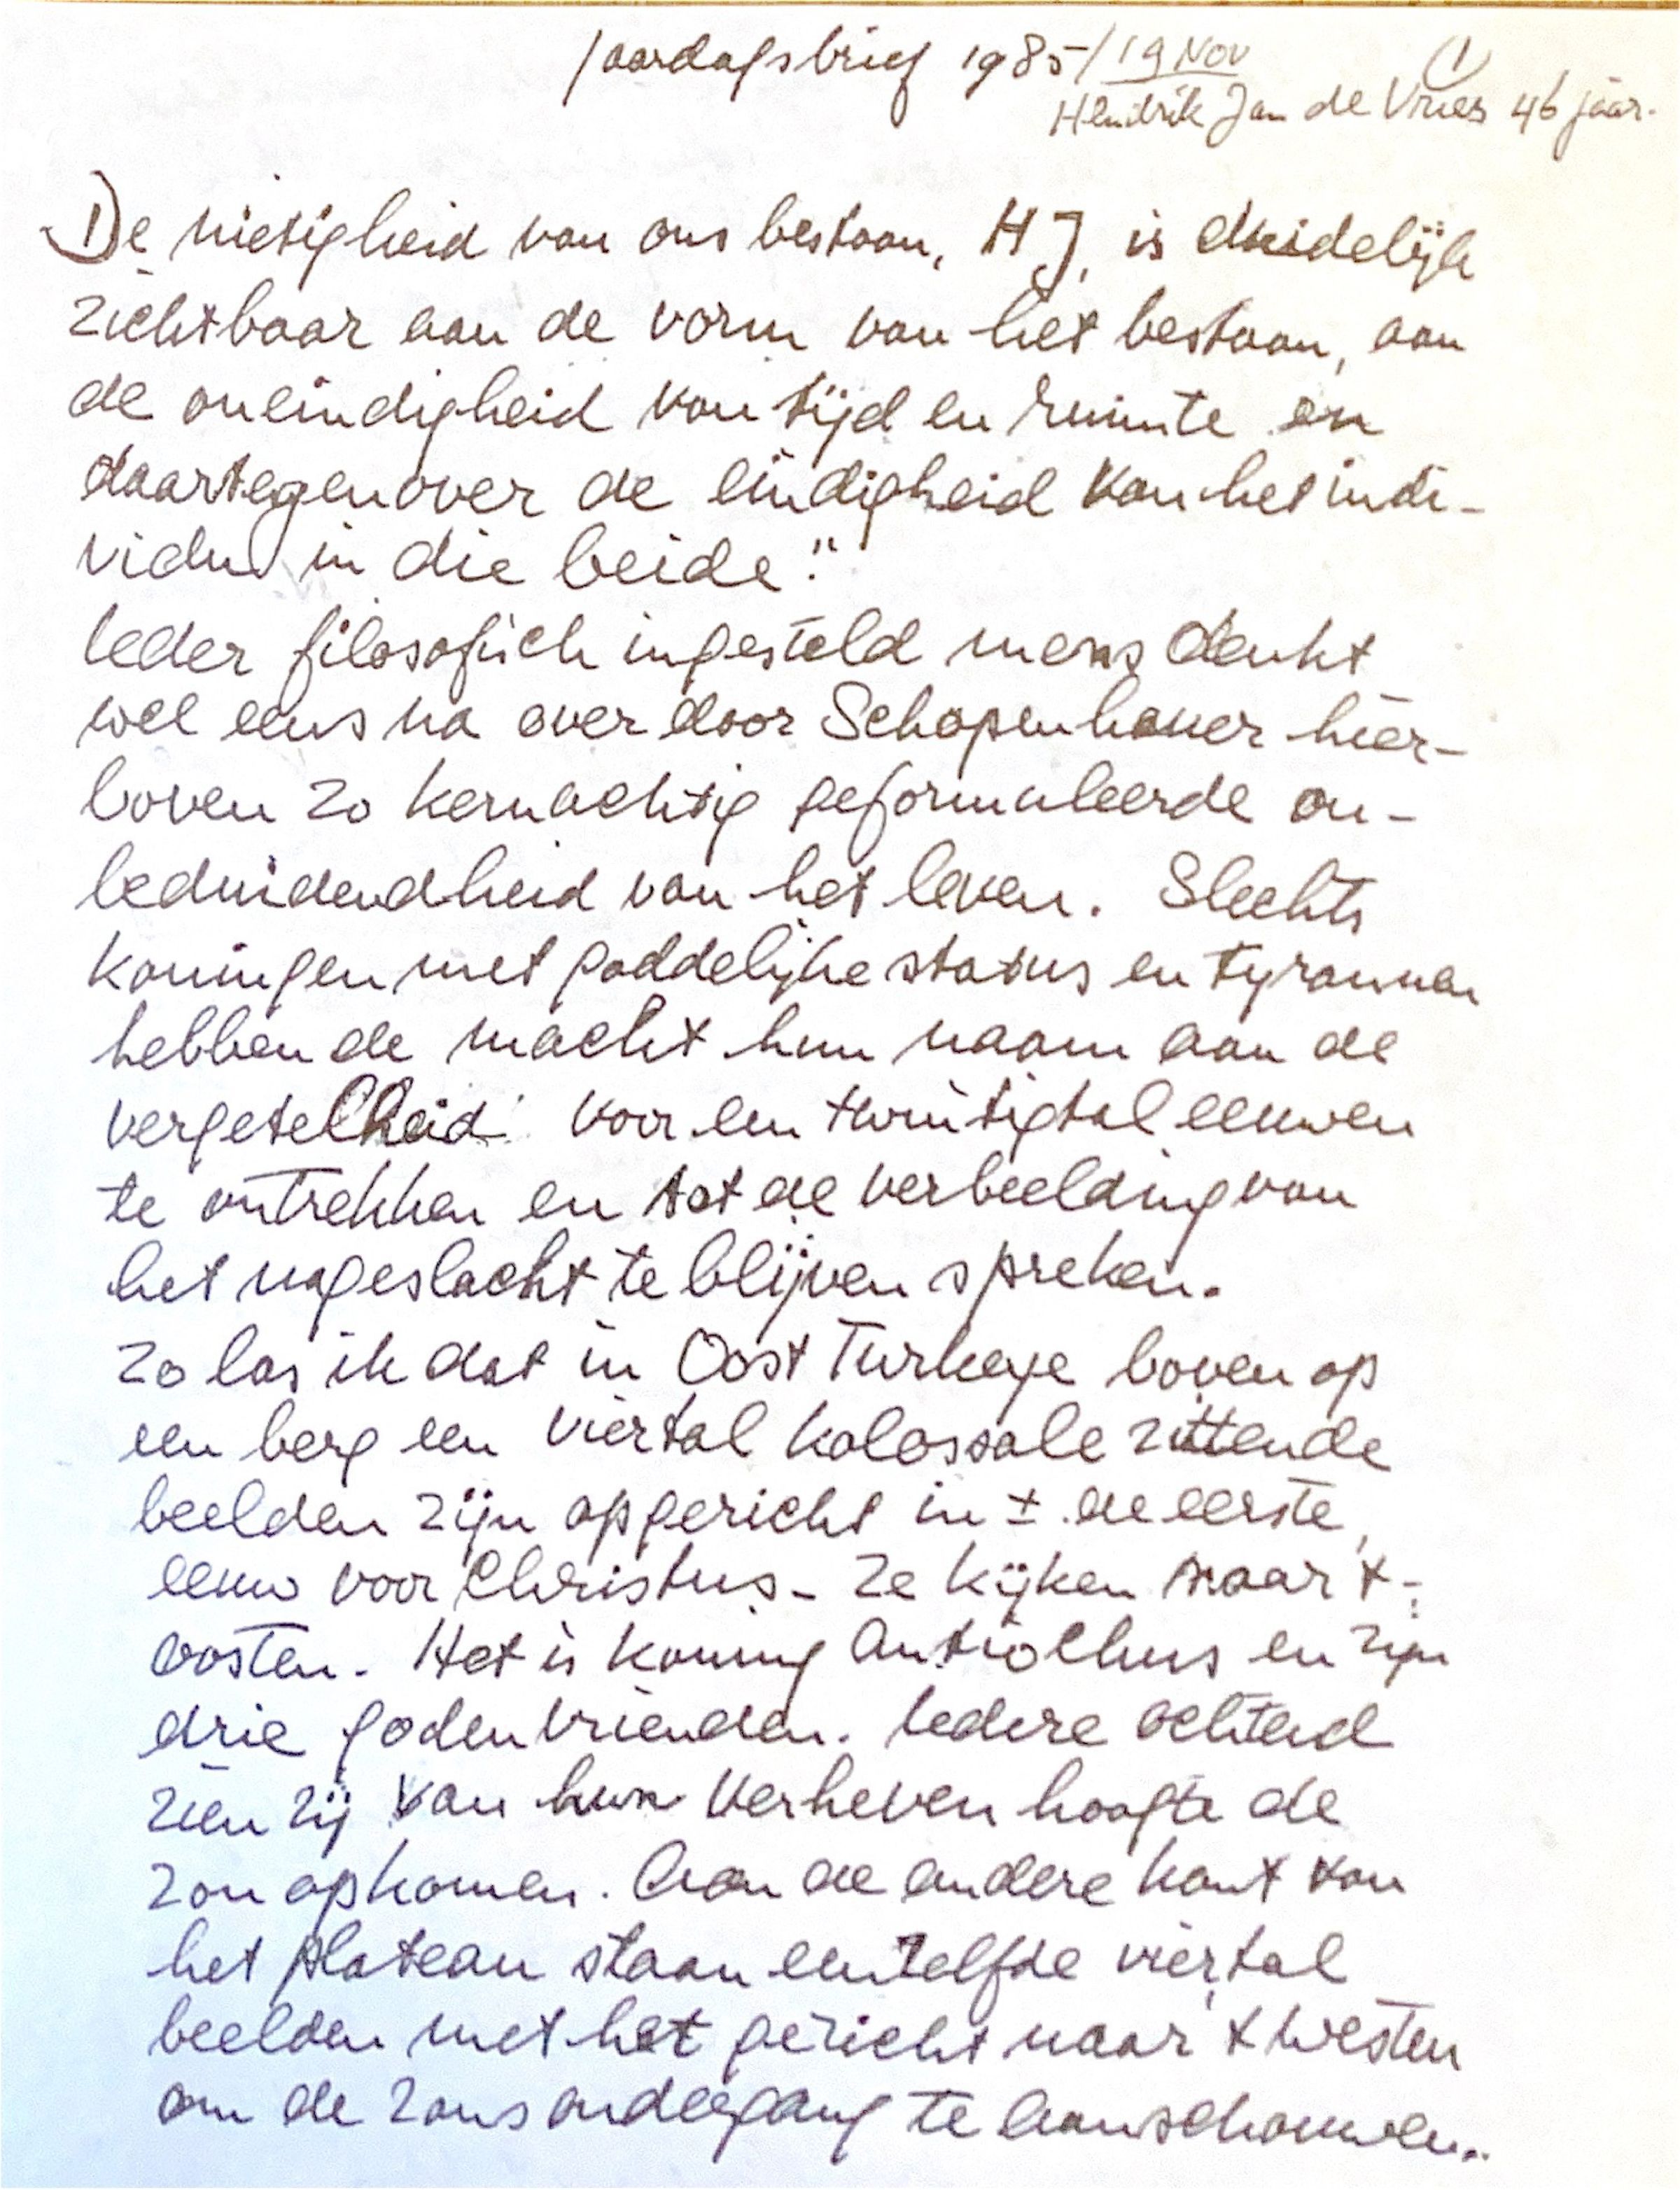 Jaardagsbrief 1985/19 Nov (1)
Hendrik Jan de Vries 46 jaar.
1) De nietigheid van ons bestaan, HJ, is duidelijk
zichtbaar aan de vorm van het bestaan, aan
de oneindigheid van tijd en ruimte en
daartegenover de eindigheid van het indi-
vidu in die beide."
Ieder filosofisch ingesteld mens denkt
wel eens na over door Schopenhauer hier-
boven zo kernachtig geformuleerde on-
beduidendheid van het leven. Slechts
koningen met goddelijke status en tyrannen
hebben de macht hun naam aan de
vergetelheid voor een twintigtal eeuwen
te ontrekken en tot de verbeelding van
het nageslacht te blijven spreken.
Zo las ik dat in Oost Turkeye boven op
een berg een viertal kolossale zittende
beelden zijn opgericht in ± de eerste
eeuw voor Christus - Ze kijken naar 't
oosten. Het is koning Antiochus en zijn
drie godenvrienden. Iedere ochtend
zien zij van hun verheven hoogte de
zon opkomen. Aan de andere kant van
het plateau staan eenzelfde viertal
beelden met het gericht naar 't westen
om de zonsondergang te aanschouwen..